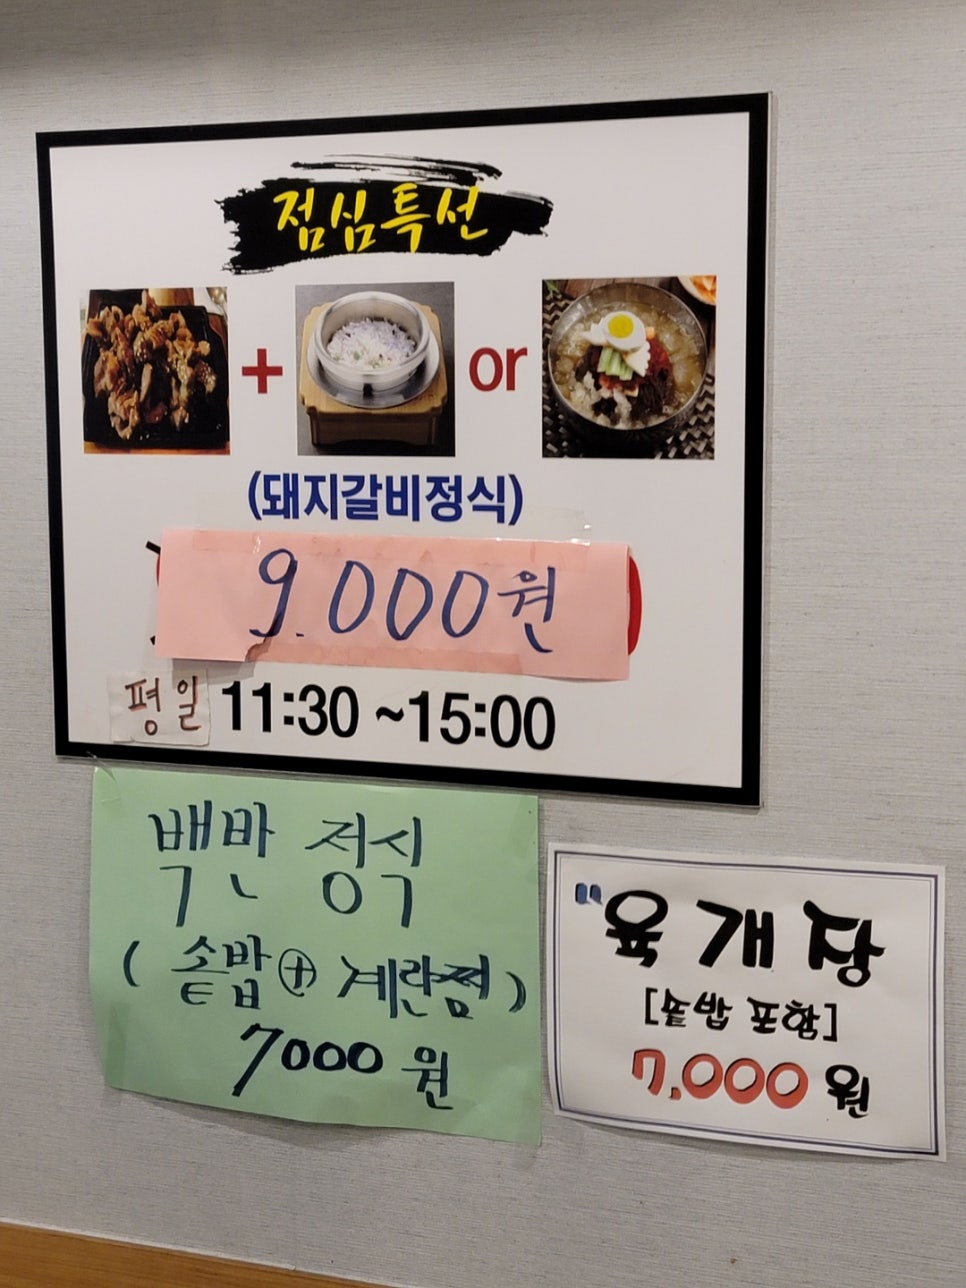 점심특선
+ or
(돼지갈비정식)
9.000원
평일 11:30 ~15:00
백반 정식
(솥밥 ⊕ 계란찜)
7000 원
"육개장
[솥밥 포함]
7,000 원